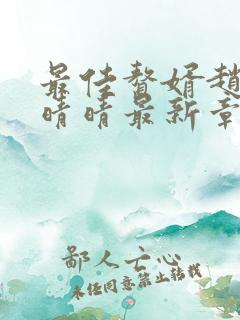 最佳赘婿赵
晴晴最新章
鄙人亡心
未经同意禁止转载